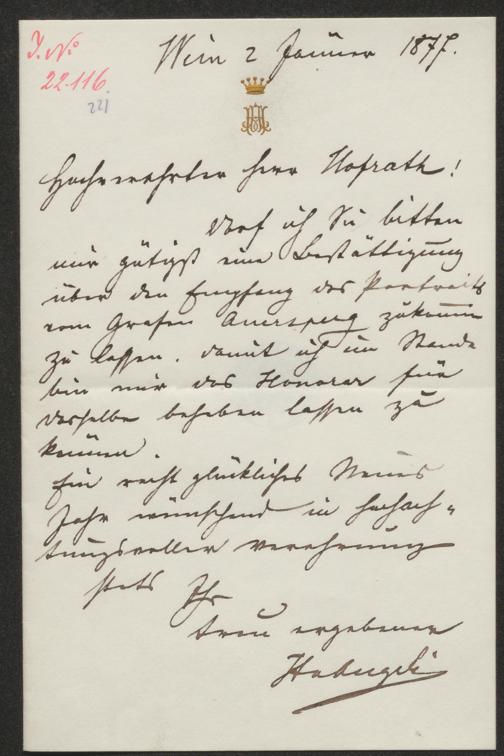 J. No
22.116.
221
Wien 2 Jänner 1877.
Hochverehrter Herr Hofrath!
Darf ich Sie bitten
mir gütigst eine Bestättigung
über den Empfang des Portraits
vom Grafen Auersperg zukommen
zu lassen. damit ich im Stande
bin mir das Honorar für
dasselbe beheben lassen zu
können.
Ein recht glückliches Neues
Jahr wünschend in hochach-
tungsvoller Verehrung
stets Ihr
treu ergebener